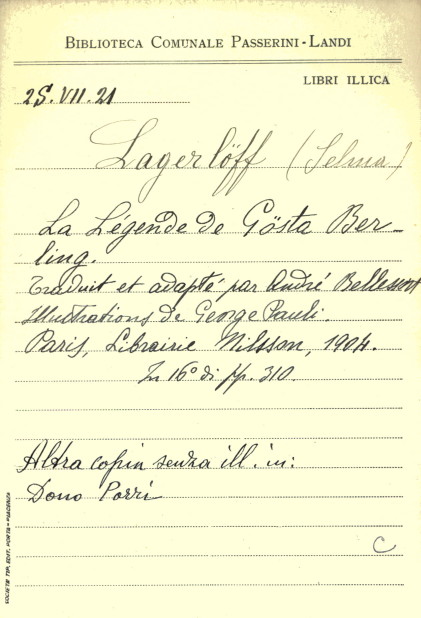 BIBLIOTECA COMUNALE PASSERINI-LANDI
LIBRI ILLICA
25.VII.21
Lagerlöff (Selma)
La Légende de Gösta Ber-
ling.
Traduit et adapté par André Bellessort
Illustrations de George Pauli.
Paris, Librairie Nilsson, 1904.
In 16° di pp. 310.
Altra copia senza ill. in:
Dono Porri
C
SOCIETÀ TIP. EDIT. PORTA - PIACENZA